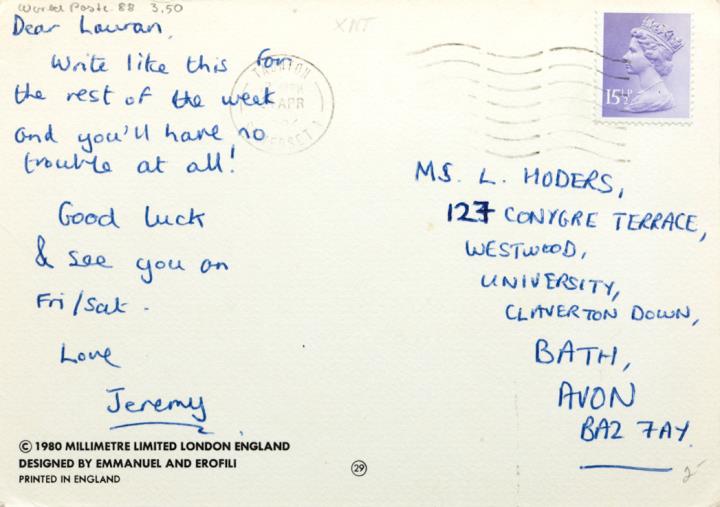 World Postc. 88 3.50
Dear Lauran,
Write like this for
the rest of the week
and you'll have no
trouble at all!
Good luck
& see you on
Fri/Sat.
Love
Jeremy
TAUNTON
APR
SOMERSET
15½P
MS. L. HODERS,
127 CONYGRE TERRACE,
WESTWOOD,
UNIVERSITY,
CLAVERTON DOWN,
BATH,
AVON
BA2 7AY.
© 1980 MILLIMETRE LIMITED LONDON ENGLAND
DESIGNED BY EMMANUEL AND EROFILI
PRINTED IN ENGLAND
29